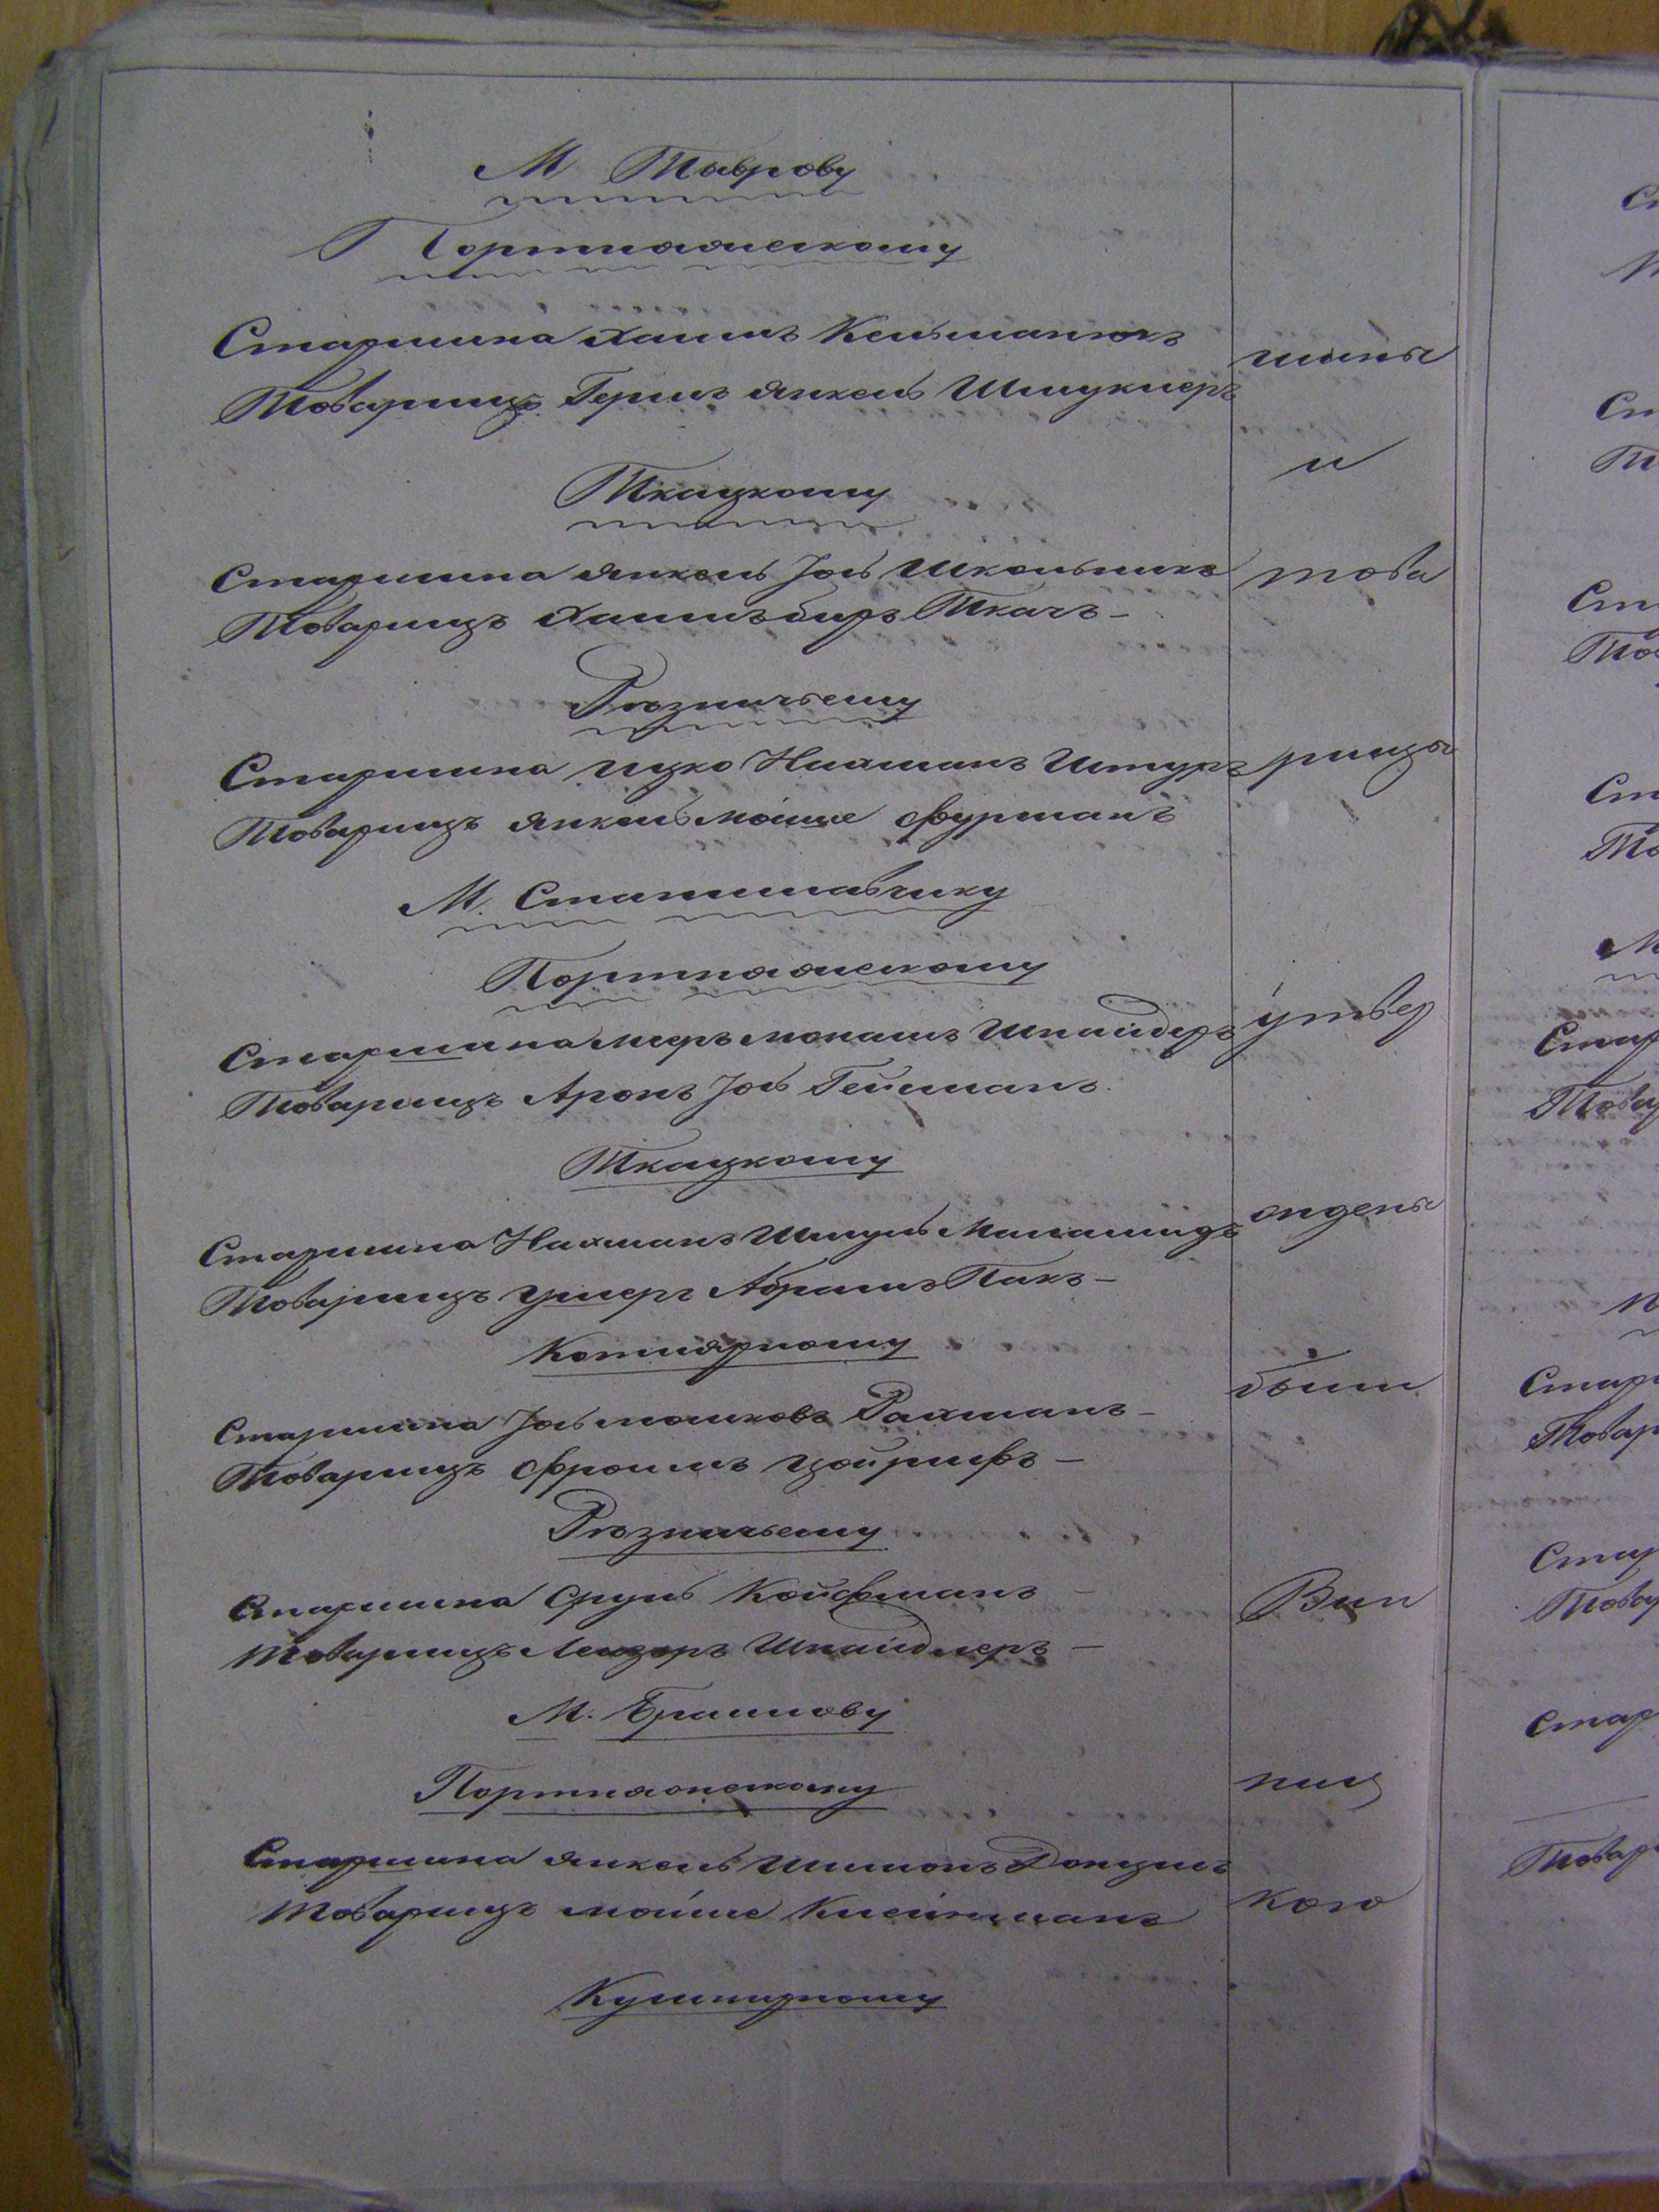 М Тыврову
Портняжескому
Старшина Хаимъ Кельманюкъ
Товарищъ Гершъ Янкель Шмуклеръ
шины
Ткацкому
и
Старшина Янкель Іось Школьникъ
това
Товарищъ Хаимъ Беръ Ткачъ -
Рѣзничьему
Старшина Ицко Нахманъ Штуръ
рищы
Товарищъ Янкель Мойше Фурманъ
М. Станиславчику
Портняжескому
Старшина Меръ Монашъ Шнайдеръ
утвер
Товарищъ Аронъ Іось Гейшманъ
Ткацкому
Старшина Нахманъ Шмуль
ждены
Товарищъ Ушеръ Абрамъ Пакъ -
Котлярному
были
Старшина Іось Мошковъ Рахманъ -
Товарищъ Фроимъ
Рѣзничьему
Старшина Сруль Койфманъ -
Вин
Товарищъ Лейзоръ Шнайдлеръ -
М. Браилову
Портняжескому
ниц
Старшина Янкель Шимонъ
Товарищъ Мойше Клейнманъ
кою
Кушнирному
Ст
Ст
Т
Ст
Тов
Ст
То
М
Стар
Товар
Стар
Товар
Стар
Товар
Стар
Товар